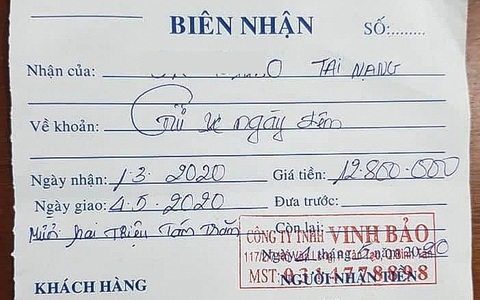 BIÊN NHẬN
SỐ:........
Nhận của: O TAI NẠNG
Về khoản: Gửi xe ngày đêm
Ngày nhận: 1.3.2020 Giá tiền: 12.800.000
Ngày giao: 4.5.2020 Đưa trước:
Mười hai Triệu Tám Trăm Còn lại:
CÔNG TY TNHH VINH BẢO
Ngày 4 tháng 5 năm 2020
MST:
KHÁCH HÀNG NGƯỜI NHẬN TIỀN